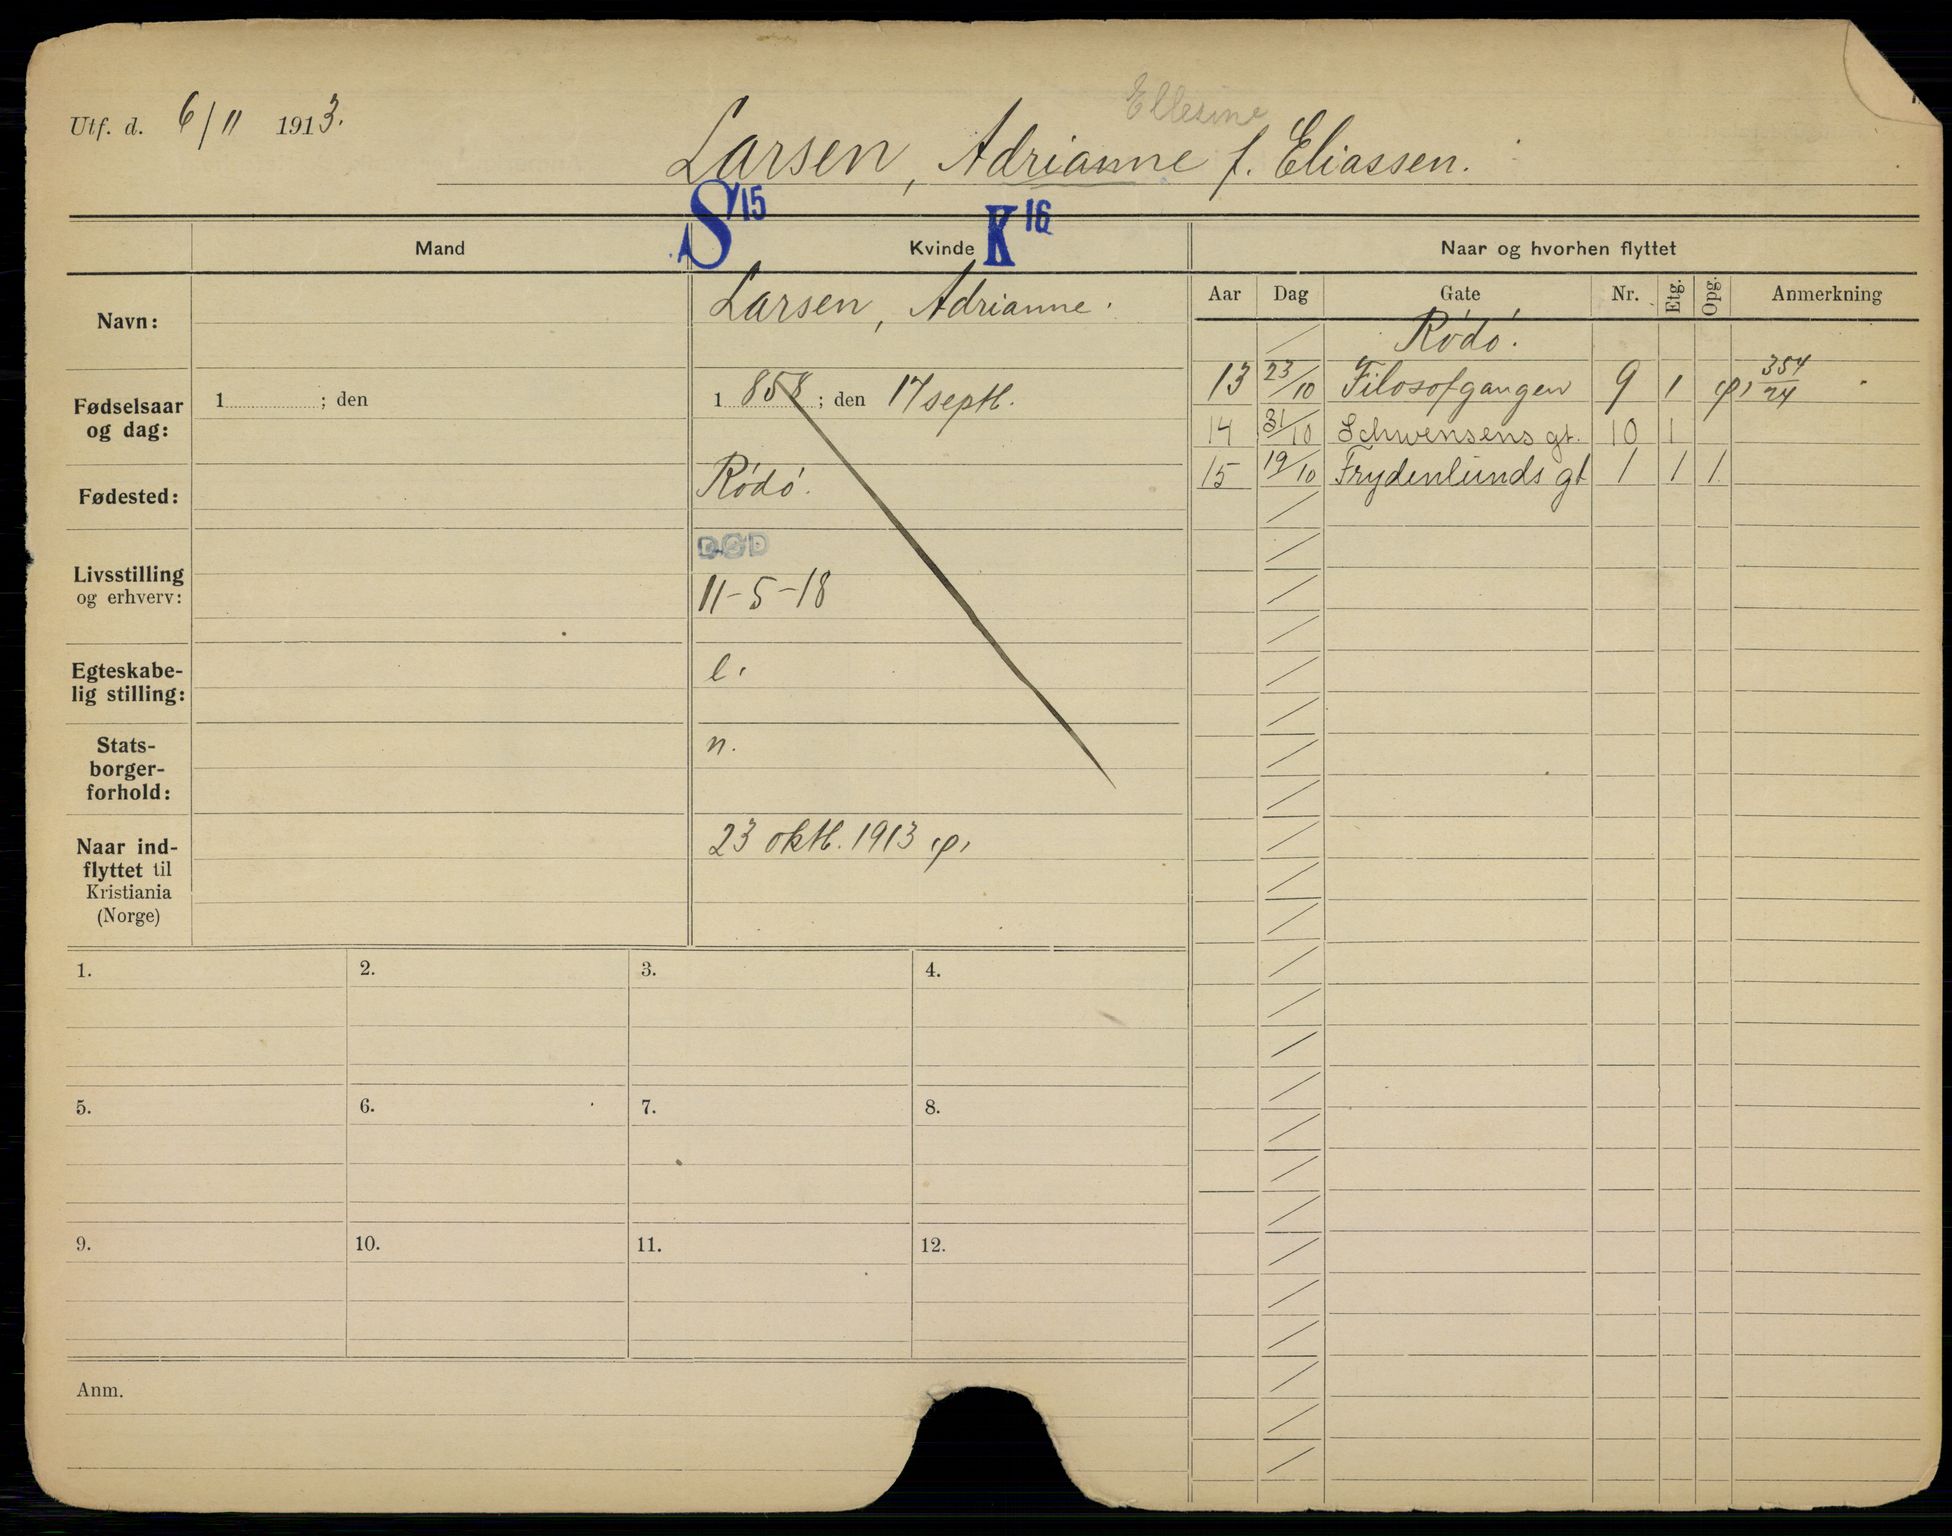 Utf. d. 6/11 1913.
Ellesine
Larsen, Adrianne f. Eliassen.
S 15
K 16
Mand
Kvinde
Naar og hvorhen flyttet
Navn:
Larsen, Adrianne.
Aar Dag Gate Nr. Etg. Opg. Anmerkning
Rödö.
13 23/10 Filosofgangen 9 1 354/24
14 31/10 Schwensens gt. 10 1
15 19/10 Frydenlunds gt 1 1 1
Fødselsaar
og dag:
1 ; den
1 858 ; den 17 septb.
Fødested:
Rödö.
Livsstilling
og erhverv:
DØD
11-5-18
Egteskabe-
lig stilling:
e.
Stats-
borger-
forhold:
n.
Naar ind-
flyttet til
Kristiania
(Norge)
23 oktb. 1913
1. 2. 3. 4.
5. 6. 7. 8.
9. 10. 11. 12.
Anm.